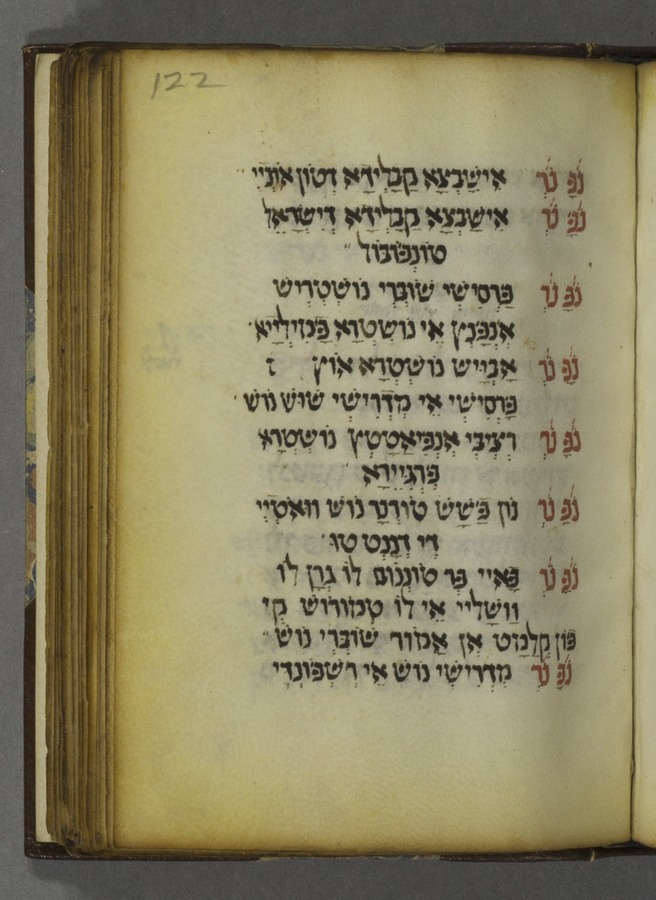 122
נפ נר אישנצא קבלידא דטון אוניי
נפ נר אישנצא קבלידא דישראל
טונבובול
נפ נר ברסישי שוברי נושטריש
אנבנץ אי נושטרא במזילייא
נפ נר אבייש נושטרא אוץ ז
ברסישי אי מדרישי שוש נוש
נפ נר רציבי אנביאטטץ נושטרא
ברגיירא
נפ נר נון בששש טורנר נוש וואטיי
די דננט טו
נפ נר באיי בר טוננום לו גרן לו
וושליי אי לו טמורוש קי
בון קלמט אן אמור שוברי נוש
נפ נר מדרישי נוש אי רשבונדי